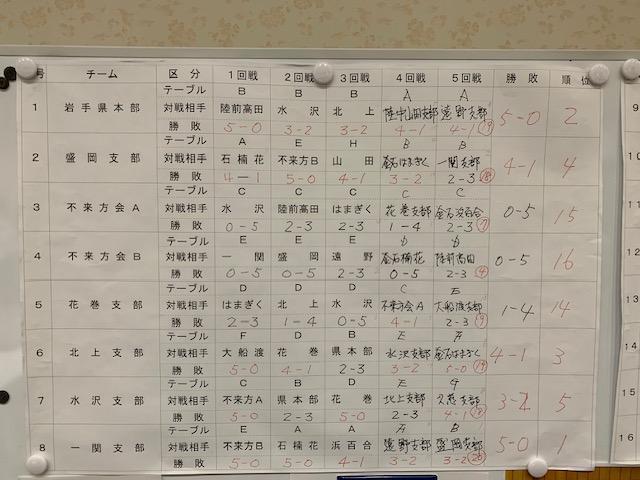 号 チーム 区分 1回戦 2回戦 3回戦 4回戦 5回戦 勝敗 順位
テーブル B B B A A
1 岩手県本部 対戦相手 陸前高田 水沢 北上 陸中山田支部 遠野支部 5-0 2
勝敗 5-0 3-2 3-2 4-1 4-1
テーブル A E H B B
2 盛岡支部 対戦相手 石楠花 不来方B 山田 釜石はまぎく 一関支部 4-1 4
勝敗 4-1 5-0 4-1 3-2 2-3 ⑱
テーブル C C C C C
3 不来方会A 対戦相手 水沢 陸前高田 はまぎく 花巻支部 釜石浜百合 0-5 15
勝敗 0-5 2-3 2-3 1-4 2-3 ⑦
テーブル E E E D D
4 不来方会B 対戦相手 一関 盛岡 遠野 釜石楠花 陸前高田 0-5 16
勝敗 0-5 0-5 2-3 0-5 2-3 ④
テーブル D D D C E
5 花巻支部 対戦相手 はまぎく 北上 水沢 不来方会A 大船渡支部 1-4 14
勝敗 2-3 1-4 0-5 4-1 2-3 ⑨
テーブル F D B E A
6 北上支部 対戦相手 大船渡 花巻 県本部 水沢支部 釜石はまぎく 4-1 3
勝敗 5-0 4-1 2-3 3-2 5-0 ⑲
テーブル C B D E G
7 水沢支部 対戦相手 不来方A 県本部 花巻 北上支部 久慈支部 3-2 5
勝敗 5-0 2-3 5-0 2-3 4-1
テーブル E A A A B
8 一関支部 対戦相手 不来方B 石楠花 浜百合 遠野支部 盛岡支部 5-0 1
勝敗 5-0 5-0 4-1 3-2 3-2 ⑳
9
10
11
12
13
14
15
16